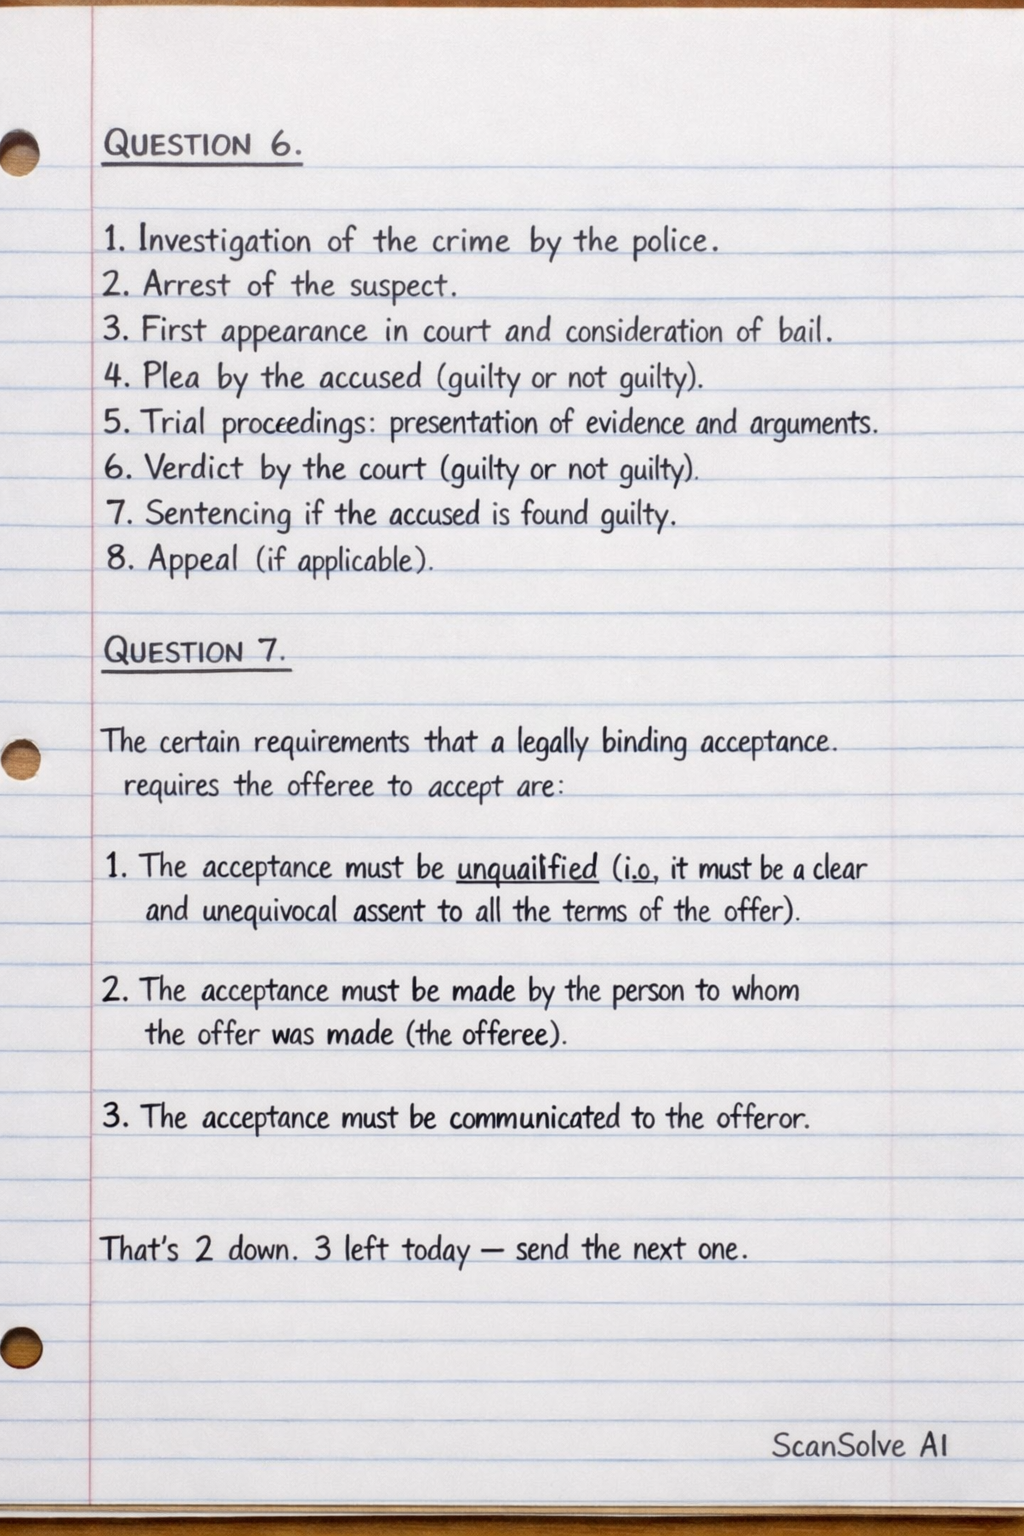 QUESTION 6.
1. Investigation of the crime by the police.
2. Arrest of the suspect.
3. First appearance in court and consideration of bail.
4. Plea by the accused (guilty or not guilty).
5. Trial proceedings: presentation of evidence and arguments.
6. Verdict by the court (guilty or not guilty).
7. Sentencing if the accused is found guilty.
8. Appeal (if applicable).
QUESTION 7.
The certain requirements that a legally binding acceptance.
requires the offeree to accept are:
1. The acceptance must be unquailfied (i.o, it must be a clear
and unequivocal assent to all the terms of the offer).
2. The acceptance must be made by the person to whom
the offer was made (the offeree).
3. The acceptance must be communicated to the offeror.
That's 2 down. 3 left today — send the next one.
ScanSolve AI